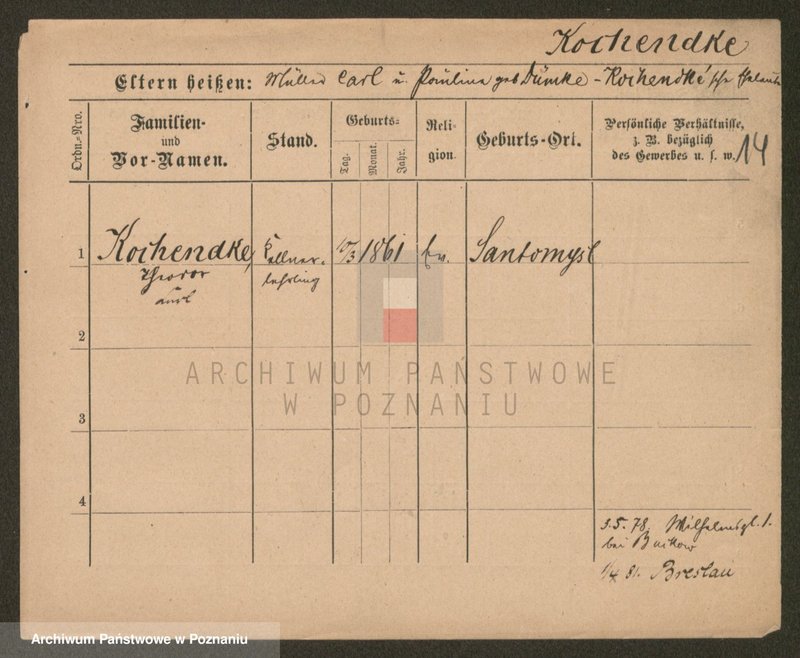 Kochendke
Eltern heißen: Müller Carl u. Pauline geb Dümke - Kochendke'sche Eheleute
Ordn.-Nro.
Familien- und Vor-Namen.
Stand.
Geburts-
Tag.
Monat.
Jahr.
Reli- gion.
Geburts-Ort.
Persönliche Verhältnisse, z. B. bezüglich des Gewerbes u. s. w.
14
1 Kochendke, Kellner- 1861 Ev. Santomysl
Theodor lehrling
2
ARCHIWUM PAŃSTWOWE
W POZNANIU
3
4
3.5.78. Wilhelmspl. 1.
bei Buckow
81. Breslau
Archiwum Państwowe w Poznaniu